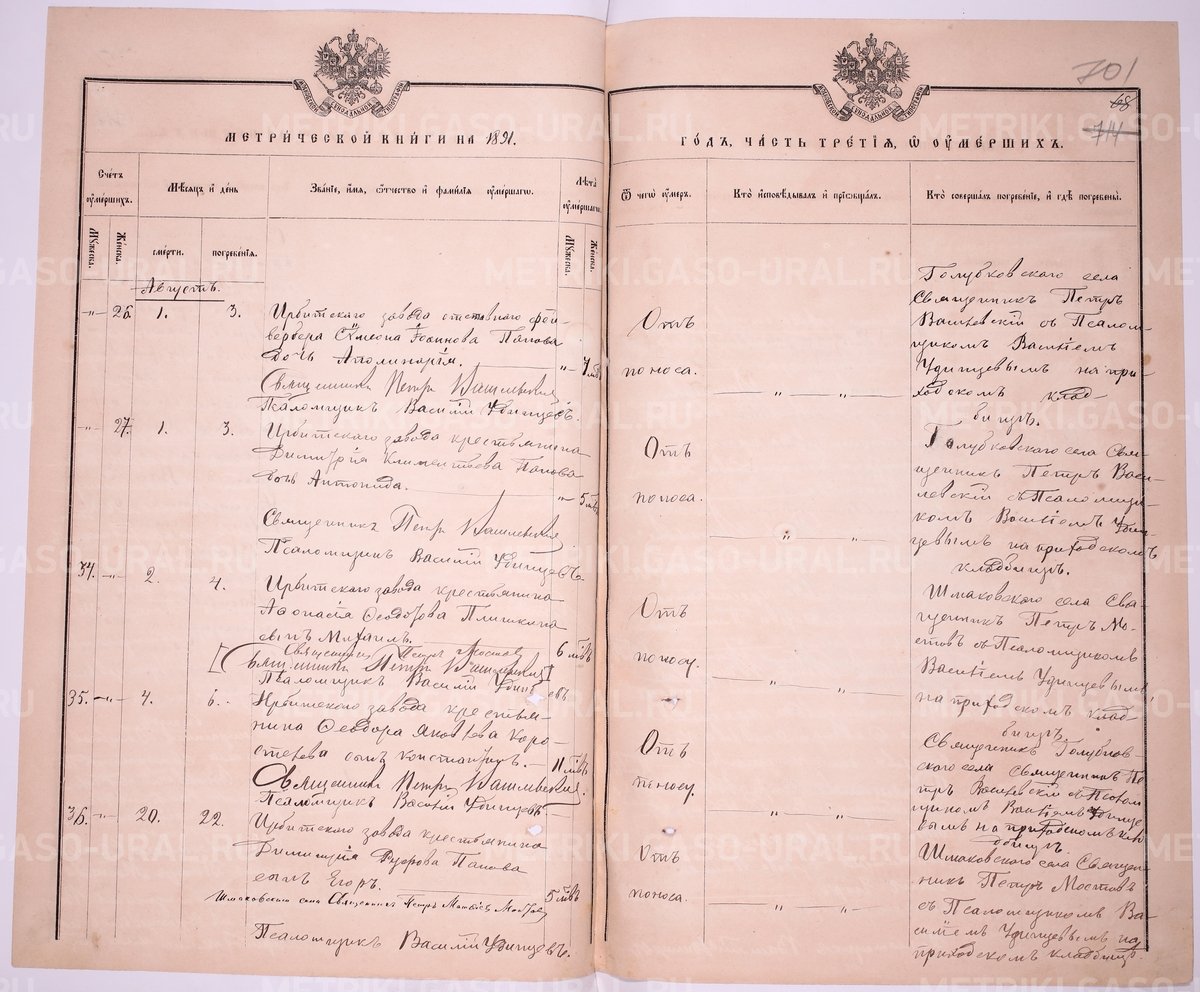 701
68
714
МЕТРИ́ЧЕСКОЙ КНИ́ГИ НА 1891.
ГО́ДЪ, ЧА́СТЬ ТРЕ́ТІЯ, Ѿ ОУМЕ́РШИХЪ.
Сче́тъ оуме́ршихъ.
Мѣ́сяцъ и де́нь
Зва́ніе, и́мя, ѻ́тчество и фами́лія оуме́ршагѡ.
Лѣ́та оуме́ршагѡ.
Ѿ чегѡ̀ оу́меръ.
Кто̀ исповѣ́дывалъ и пріѡбща́лъ.
Кто̀ соверша́лъ погребе́ніе, и гдѣ̀ погребены̀.
Мꙋ́жеска.
Же́нска.
сме́рти.
погребе́нія.
Мꙋ́жеска.
Же́нска.
Августъ.
-"- 26 1. 3. Ирбитскаго завода отставного фей-
вербера Сѵмеона Іоаннова Папова
дочь Аполинарія. -"-
Священникъ Петръ Васильевскій
Псаломщикъ Василій Удинцевъ.
Отъ
поноса.
" — "
Голубковскаго села
Священникъ Петръ
Васильевскій съ Псалом-
щикомъ Василіемъ
Удинцевымъ на при-
ходскомъ клад-
бищѣ.
-"- 27. 1. 3. Ирбитскаго завода крестьянина
Димитрія Климентова Папова
дочь Антонида. -"- 5
Священникъ Петръ Васильевскій
Псаломщикъ Василій Удинцевъ.
Отъ
поноса.
" — "
Голубковскаго села Свя-
щенникъ Петръ Васи-
левскій съ Псаломщи-
комъ Василіемъ Удин-
цевымъ на приходскомъ
кладбищѣ.
34. -"- 2. 4. Ирбитскаго завода крестьянина
Аѳонасія Ѳеодорова Плишкина
сынъ Михаилъ. 6
Священникъ Петръ Мостовъ
[Священникъ Петръ Васильевскій]
Псаломщикъ Василій Удинцевъ
Отъ
поносу.
" — "
Шмаковскаго села Свя-
щенникъ Петръ Мо-
стовъ съ Псаломщикомъ
Василіемъ Удинцевымъ
на приходскомъ клад-
бищѣ.
35. -"- 4. 6. Ирбитскаго завода крестья-
нина Ѳеодора Яковлева Коро-
стелева сынъ Константинъ. — 11
Священникъ Петръ Васильевскій.
Псаломщикъ Василій Удинцевъ.
Отъ
поносу.
" — "
Священникъ Голубков-
скаго села Священникъ Пе-
тръ Васильевскій съ Псалом
щикомъ Василіемъ Удинце
вымъ на приходскомъ клад
бищѣ.
36. -"- 20. 22. Ирбитскаго завода крестьянина
Димитрія Папова
сынъ Егоръ. 5
Шмаковскаго села Священникъ Петръ Мостовъ
Псаломщикъ Василій Удинцевъ.
Отъ
поноса.
" — "
Шмаковскаго села Священ-
никъ Петръ Мостовъ
съ Псаломщикомъ Ва-
силіемъ Удинцевымъ на
приходскомъ кладбищѣ.
METRIKI.GASO-URAL.RU